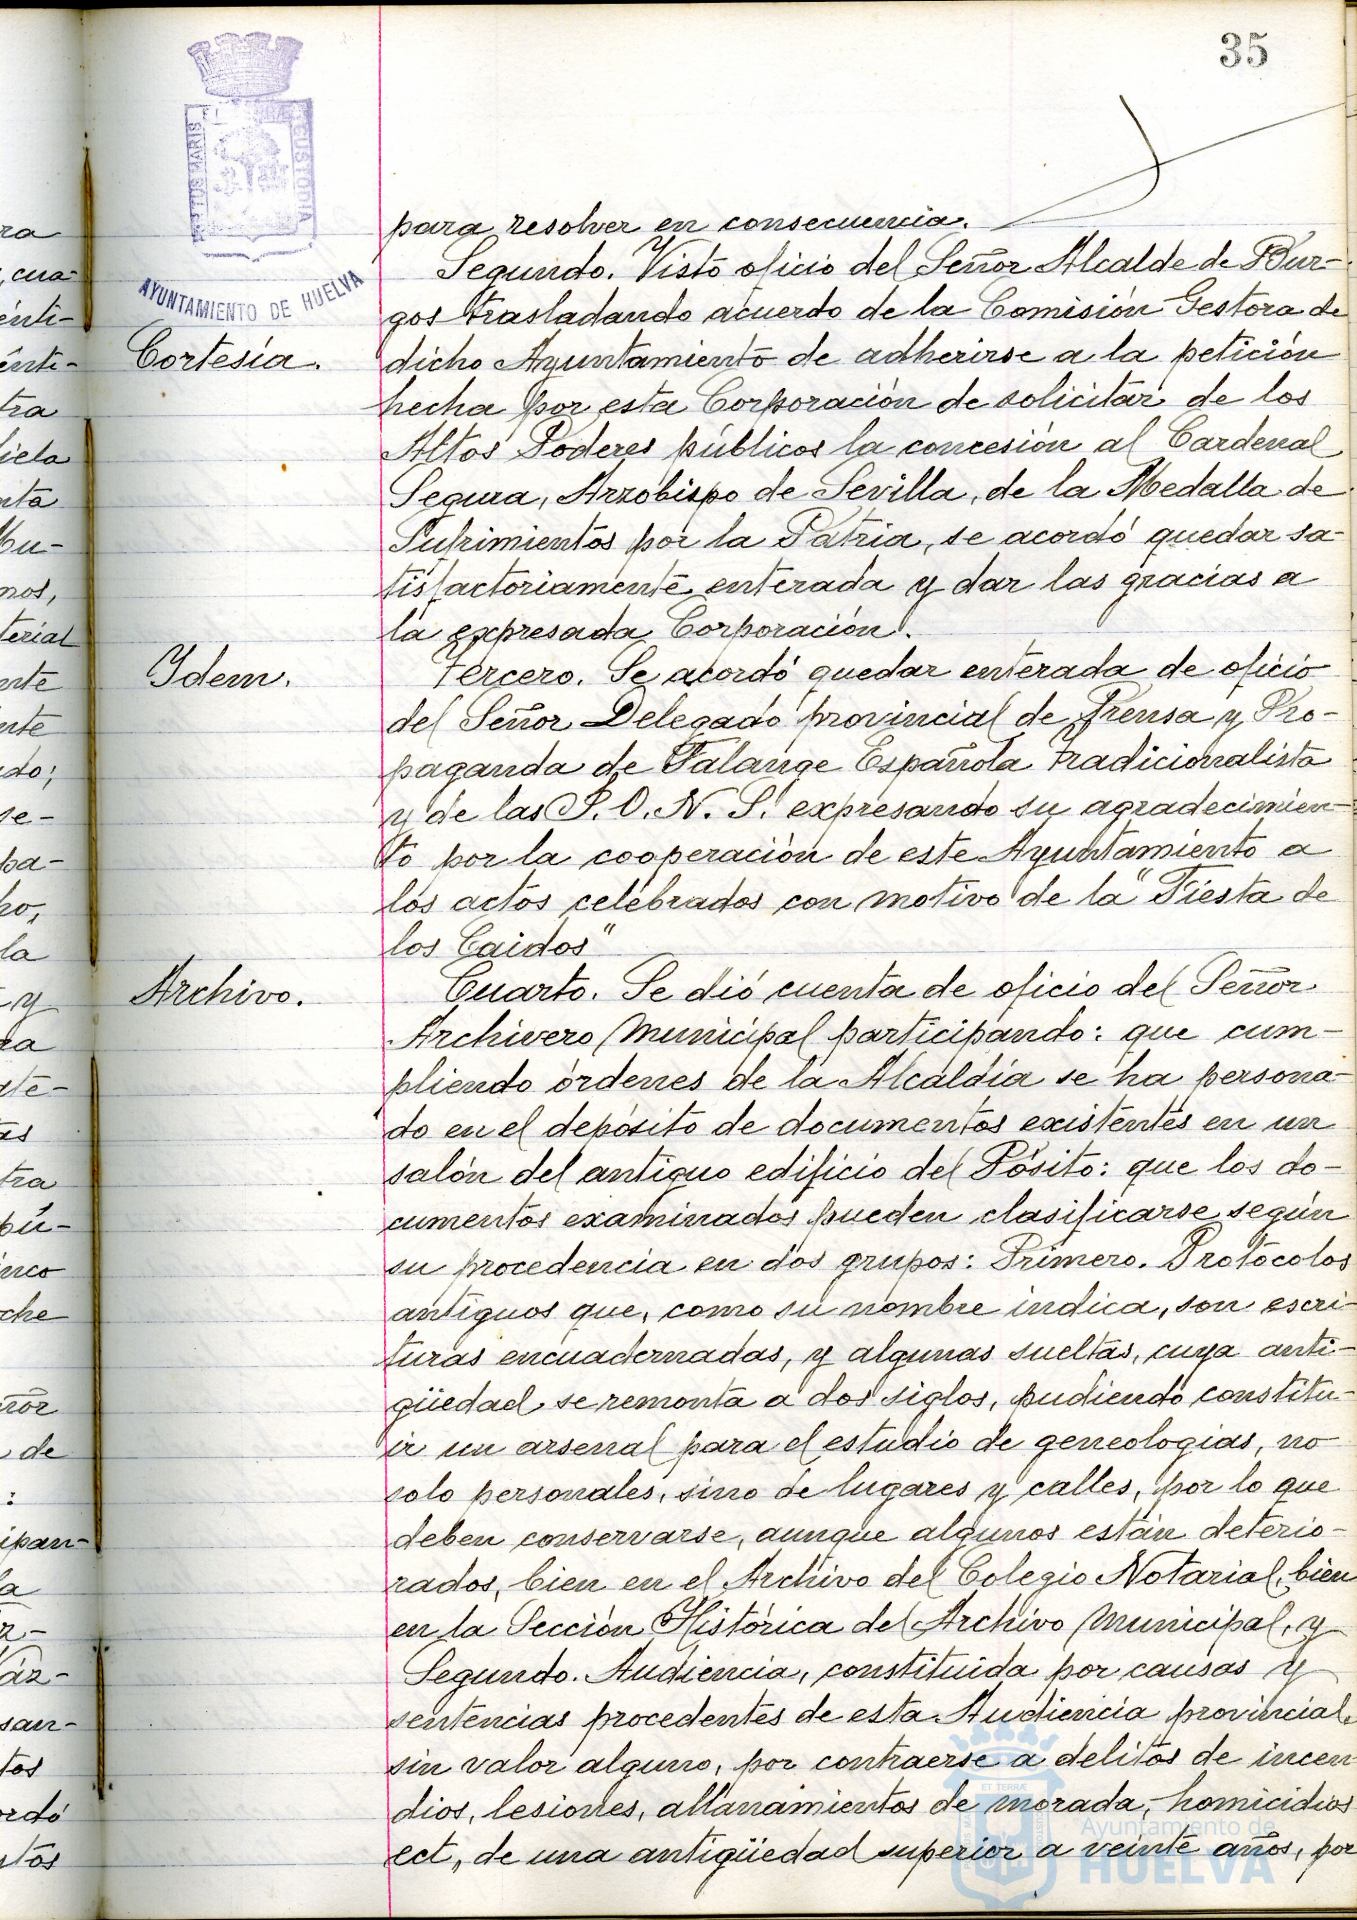 35
PORTUS MARIS
CUSTODIA
AYUNTAMIENTO DE HUELVA
para resolver en consecuencia.
Segundo. Visto oficio del Señor Alcalde de Bur-
gos trasladando acuerdo de la Comisión Gestora de
Cortesía.
dicho Ayuntamiento de adherirse a la petición
hecha por esta Corporación de solicitar de los
Altos Poderes públicos la concesión al Cardenal
Segura, Arzobispo de Sevilla, de la Medalla de
Sufrimientos por la Patria, se acordó quedar sa-
tisfactoriamente enterada y dar las gracias a
la expresada Corporación.
Ydem.
Tercero. Se acordó quedar enterada de oficio
del Señor Delegado provincial de Prensa y Pro-
paganda de Falange Española Tradicionalista
y de las J. O. N. S. expresando su agradecimien-
to por la cooperación de este Ayuntamiento a
los actos celebrados con motivo de la "Fiesta de
los Caidos"
Archivo.
Cuarto. Se dió cuenta de oficio del Señor
Archivero Municipal participando: que cum-
pliendo órdenes de la Alcaldía se ha persona-
do en el depósito de documentos existentes en un
salón del antiguo edificio del Pósito: que los do-
cumentos examinados pueden clasificarse según
su procedencia en dos grupos: Primero. Protocolos
antiguos que, como su nombre indica, son escri-
turas encuadernadas, y algunas sueltas, cuya anti-
güedad se remonta a dos siglos, pudiendo constitu-
ir un arsenal para el estudio de geneologias, no
solo personales, sino de lugares y calles, por lo que
deben conservarse, aunque algunos están deterio-
rados, bien en el Archivo del Colegio Notarial, bien
en la Sección Histórica del Archivo Municipal, y
Segundo. Audiencia, constituida por causas y
sentencias procedentes de esta Audiencia provincial,
sin valor alguno, por contraerse a delitos de incen-
dios, lesiones, allanamientos de morada, homicidios
ect, de una antigüedad superior a veinte años, por
Ayuntamiento de
HUELVA